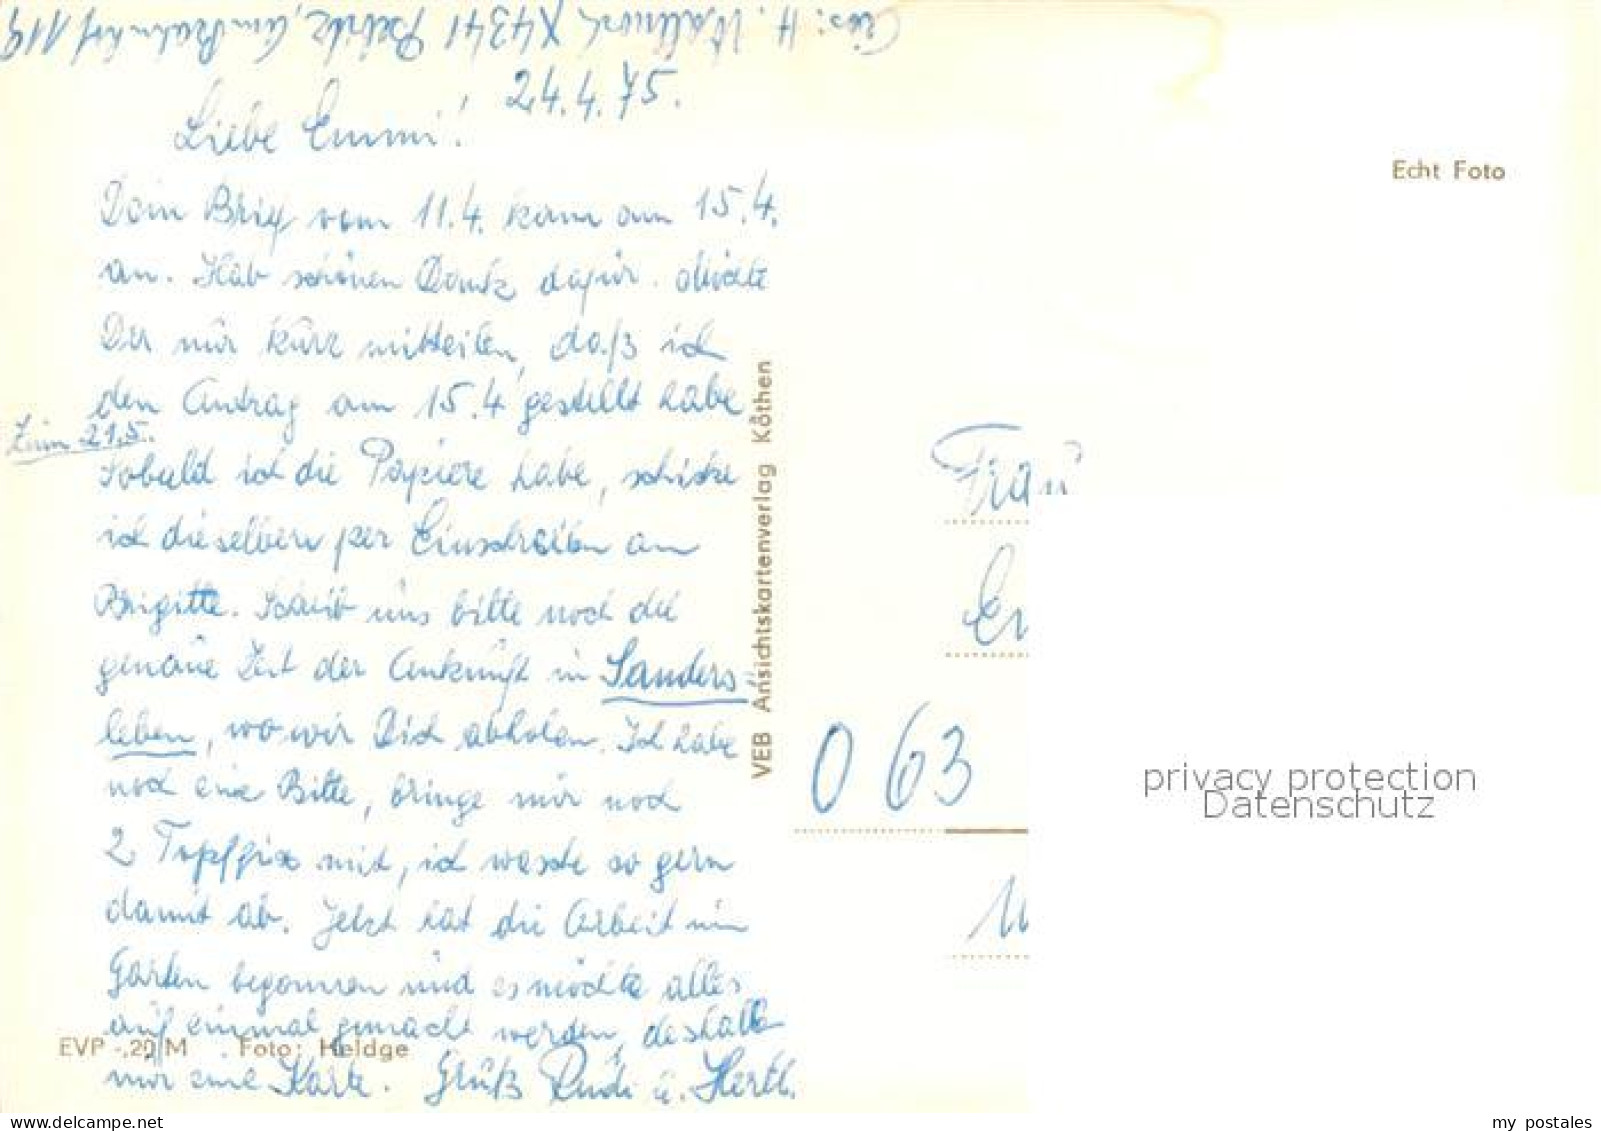 H. X4341 119
24.4.75.
Liebe Emmi!
Dein Brief vom 11.4. kam am 15.4.
an. Hab schönen Dank dafür. Möchte
Dir nur kurz mitteilen, daß ich
den Antrag am 15.4 gestellt habe
Zum 21.5.
Sobald ich die Papiere habe, schicke
ich dieselben per Einschreiben an
Brigitte. Schreib uns bitte noch die
genaue Zeit der Ankunft in Sanders=
leben, wo wir Dich abholen. Ich habe
noch eine Bitte, bringe mir noch
2 Topffix mit, ich wasche so gern
damit ab. Jetzt hat die Arbeit im
Garten begonnen und es möchte alles
auf einmal gemacht werden, deshalb
nur eine Karte. Gruß Rudi u. Herth.
EVP -,20 M Foto: Heldge
VEB Ansichtskartenverlag Köthen
Echt Foto
Frau
063
privacy protection
Datenschutz
my postales